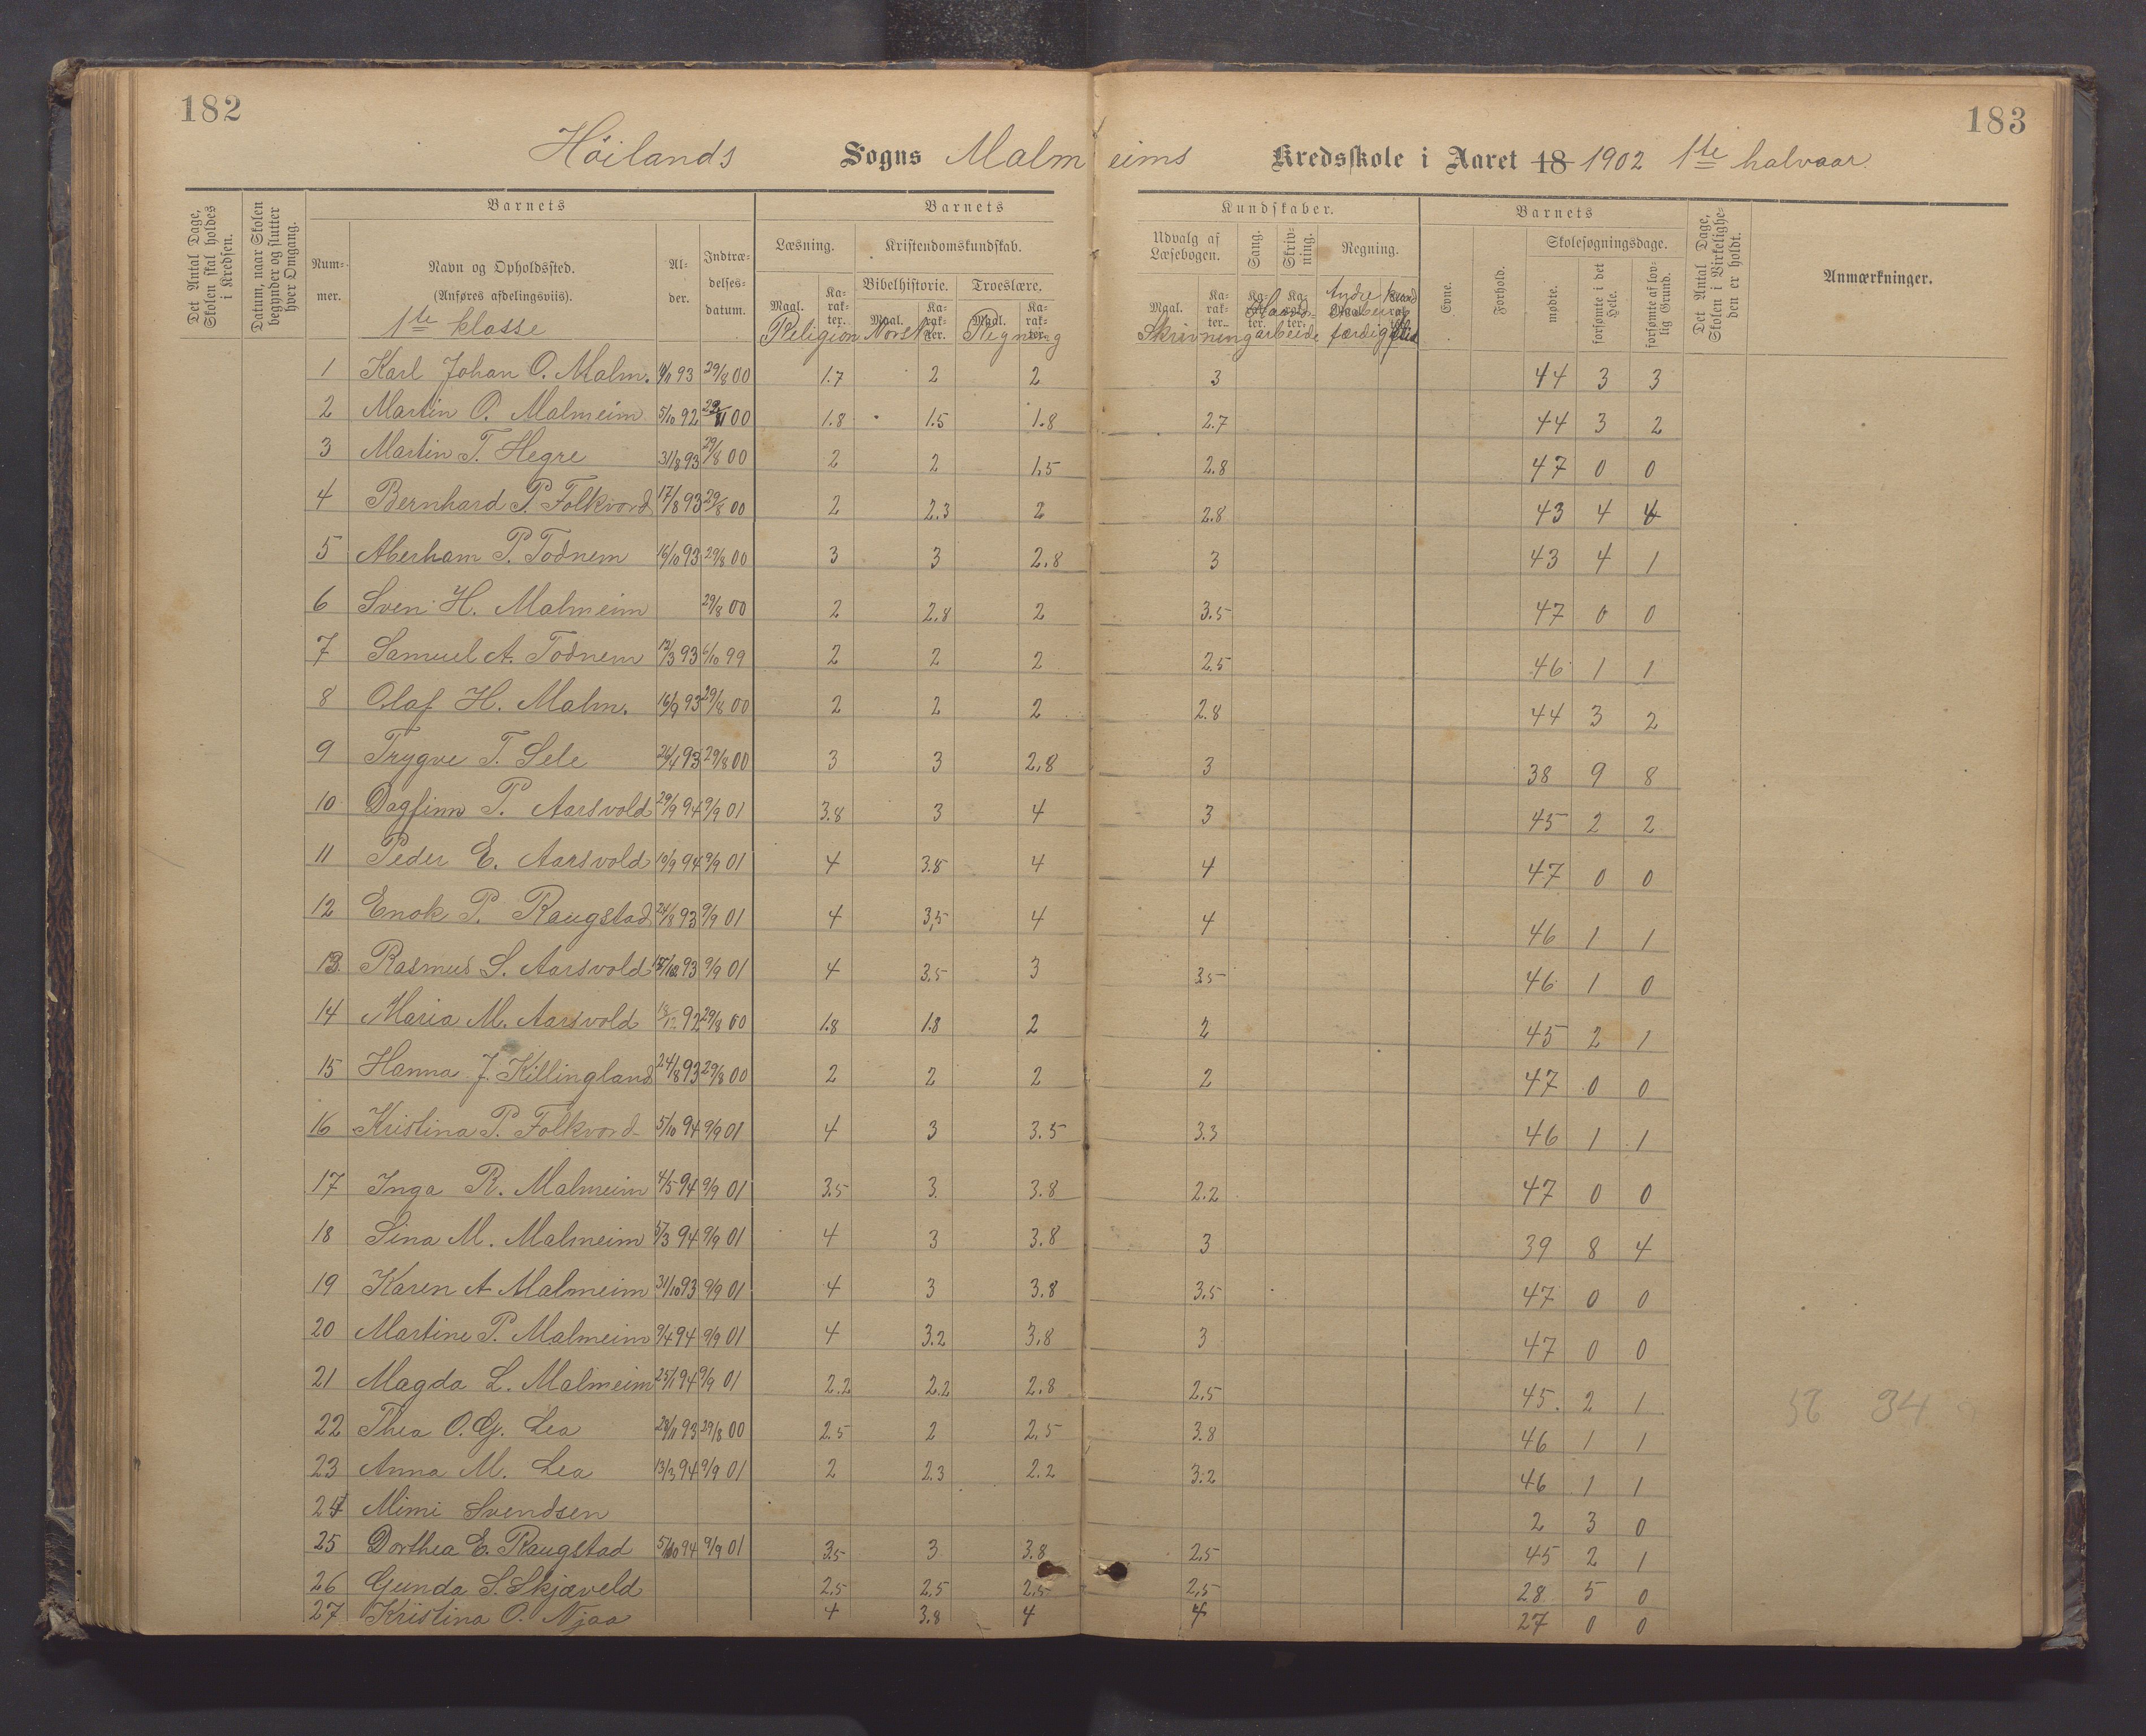 182
183
Höilands Sogns Malmeims Kredsskole i Aaret 18 1902 1ste halvaar
Det Antal Dage, Skolen skal holdes i Kredsen.
Datum, naar Skolen begynder og slutter hver Omgang.
Barnets
Barnets
Kundskaber.
Barnets
Det Antal Dage, Skolen i Virkeligheden er holdt.
Anmærkninger.
Nummer.
Navn og Opholdssted.
(Anføres afdelingsviis).
Alder.
Indtrædelsesdatum.
Læsning.
Kristendomskundskab.
Bibelhistorie.
Troeslære.
Udvalg af Læsebogen.
Sang.
Skrivning.
Regning.
Evne.
Forhold.
Skolesøgningsdage.
mødte.
forsømte i det Hele.
forsømte af lovlig Grund.
Maal. Karakter. Maal. Karakter. Maal. Karakter. Maal. Karakter.
1ste klasse
Religion Norsk Regning Skrivning
1 Karl Johan O. Malm. 93 29/8 00 1.7 2 2 3 44 3 3
2 Martin O. Malmeim 5/10 92 00 1.8 1.5 1.8 2.7 44 3 2
3 Martin T. Hegre 31/8 93 29/8 00 2 2 1,5 2.8 47 0 0
4 Bernhard P. Folkvord 17/8 93 29/8 00 2 2.3 2 2.8 43 4 4
5 Aberham P. Todnem 16/10 93 29/8 00 3 3 2,8 3 43 4 1
6 Sven H. Malmeim 29/8 00 2 2,8 2 3.5 47 0 0
7 Samuel A. Todnem 12/3 93 6/10 99 2 2 2 2.5 46 1 1
8 Olaf H. Malm. 16/9 93 29/8 00 2 2 2 2.8 44 3 2
9 Trygve T. Sele 26/4 93 29/8 00 3 3 2,8 3 38 9 8
10 Dagfinn P. Aarsvold 29/9 94 9/9 01 3.8 3 4 3 45 2 2
11 Peder E. Aarsvold 10/9 94 9/9 01 4 3.8 4 4 47 0 0
12 Enok P. Raugstad 24/8 93 9/9 01 4 3,5 4 4 46 1 1
13 Rasmus S. Aarsvold 93 9/9 01 4 3.5 3 3.5 46 1 0
14 Maria M. Aarsvold 18/12 92 29/8 00 1.8 1.8 2 2 45 2 1
15 Hanna J. Killingland 24/8 93 29/8 00 2 2 2 2 47 0 0
16 Kristina P. Folkvord 5/10 94 9/9 01 4 3 3.5 3.3 46 1 1
17 Inga R. Malmeim 4/5 94 9/9 01 3.5 3 3.8 2.2 47 0 0
18 Sina M. Malmeim 5/3 94 9/9 01 4 3 3.8 3 39 8 4
19 Karen A Malmeim 31/10 93 9/9 01 4 3 3.8 3,5 47 0 0
20 Martine P. Malmeim 9/4 94 9/9 01 4 3.2 3,8 3 47 0 0
21 Magda L. Malmeim 25/1 94 9/9 01 2.2 2.2 2.8 2,5 45 2 1
22 Thea O.G. Lea 29/11 93 29/8 00 2.5 2 2,5 3.8 46 1 1
23 Anna M. Lea 13/3 94 9/9 01 2 2.3 2.2 3.2 46 1 1
24 Mimi Svendsen 2 3 0
25 Dorthea E. Raugstad 5/10 94 9/9 01 3.5 3 3.8 2,5 45 2 1
26 Gunda S. Skjæveld 2,5 2,5 2,5 2,5 28 5 0
27 Kristina O. Njaa 4 3.8 4 4 27 0 0
34